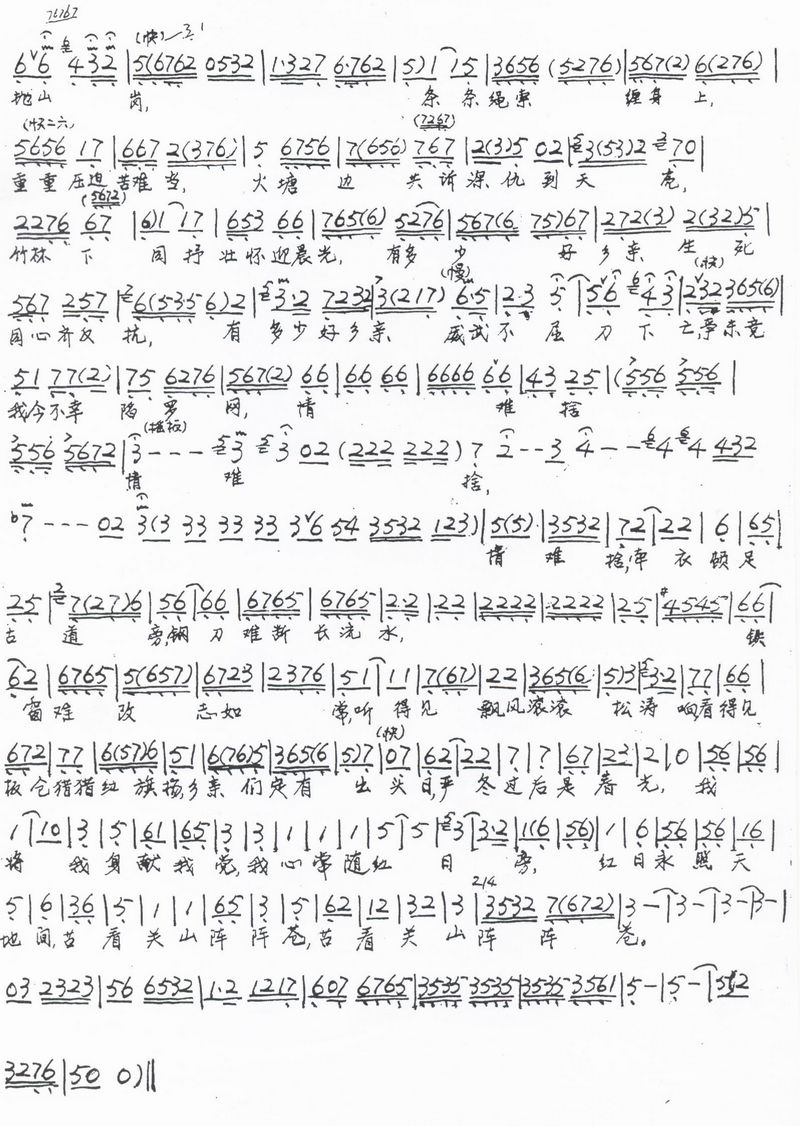 7276７
(快) 3 1
6 6 4 3 2 | 5(6762 0532 | 1·327 6·762 | 5) 1 1 5 | 3656 (5276) | 567(2) 6(276) |
拋山 岗, 条 条 绳索 缠身 上,
(快二六) (7267)
5656 17 | 667 2(376) | 5 6756 | 7(656) 767 | 2(3)5 02 | 3(53)2 70 |
重重压迫苦难当, 火塘 边 共诉深仇到天 亮,
(5672)
2276 67 | 6)1 17 | 653 66 | 765(6) 5276 | 567(6 75)67 | 272(3) 2(32)5 |
竹林 下 同抒壮怀迎晨光, 有多 少 好乡亲 生 死
(慢) (快)
567 257 | 6(535 6)2 | 3·2 7232 | 3(217) 6·5 | 2·3 5 | 56 43 | 232 365(6) |
同心齐反 抗, 有 多少好乡亲 威武不 屈 刀 下 亡,争东竞
51 77(2) | 75 6276 | 567(2) 66 | 66 66 | 6666 66 | 43 25 | (556 556 |
我今不幸 陷 罗 网, 情 难 捨
(摇板)
556 5672 | 3 - - - 3 3 02 (222 222) 7 2 - - 3 4 - - 4 4 432
情 难 捨,
7 - - - 02 3(3 33 33 33 36 54 3532 123) | 5(5) | 3532 | 72 | 22 | 6 | 65 |
情 难 捨,牵 衣 顿 足
25 | 7(27)6 | 56 | 66 | 6765 | 6765 | 2·2 | 22 | 2222 | 2222 | 25 | #4545 | 66 |
古 道 旁,钢 刀 难断 长流 水, 铁
62 | 6765 | 5(657) | 6723 | 2376 | 51 | 11 | 7(67) | 22 | 365(6 | 5)3 | 3·2 | 77 | 66 |
窗难 改 志如 常,听 得见 飘风滚滚 松涛 响看得见
(快)
672 | 77 | 6(57)6 | 51 | 6(76)5 | 365(6 | 5)7 | 07 | 62 | 22 | 7 | 7 | 67 | 23 | 2 | 0 | 56 | 56 |
板仓猎猎红 旗扬,乡亲 们定有 出头日,严 冬过后是春光, 我
1 | 10 | 3 | 5 | 61 | 65 | 3 | 3 | 1 | 1 | 1 | 5 | 5 | 3 | 3·2 | 116 | 56) | 1 | 6 | 56 | 56 | 16 |
将 我身献我党,我心常随红 日 旁, 红日永照天
2/4
5 | 6 | 36 | 5 | 1 | 1 | 65 | 3 | 5 | 62 | 12 | 32 | 3 | 3532 7(672) | 3 - | 3 - | 3 - | 3 - |
地间,苦看关山阵阵苍,苦看关山阵 阵 苍。
03 2323 | 56 6532 | 1·2 1217 | 607 6765 | 3535 3535 | 3535 3561 | 5 - | 5 - | 512
3276 | 50 0) ||